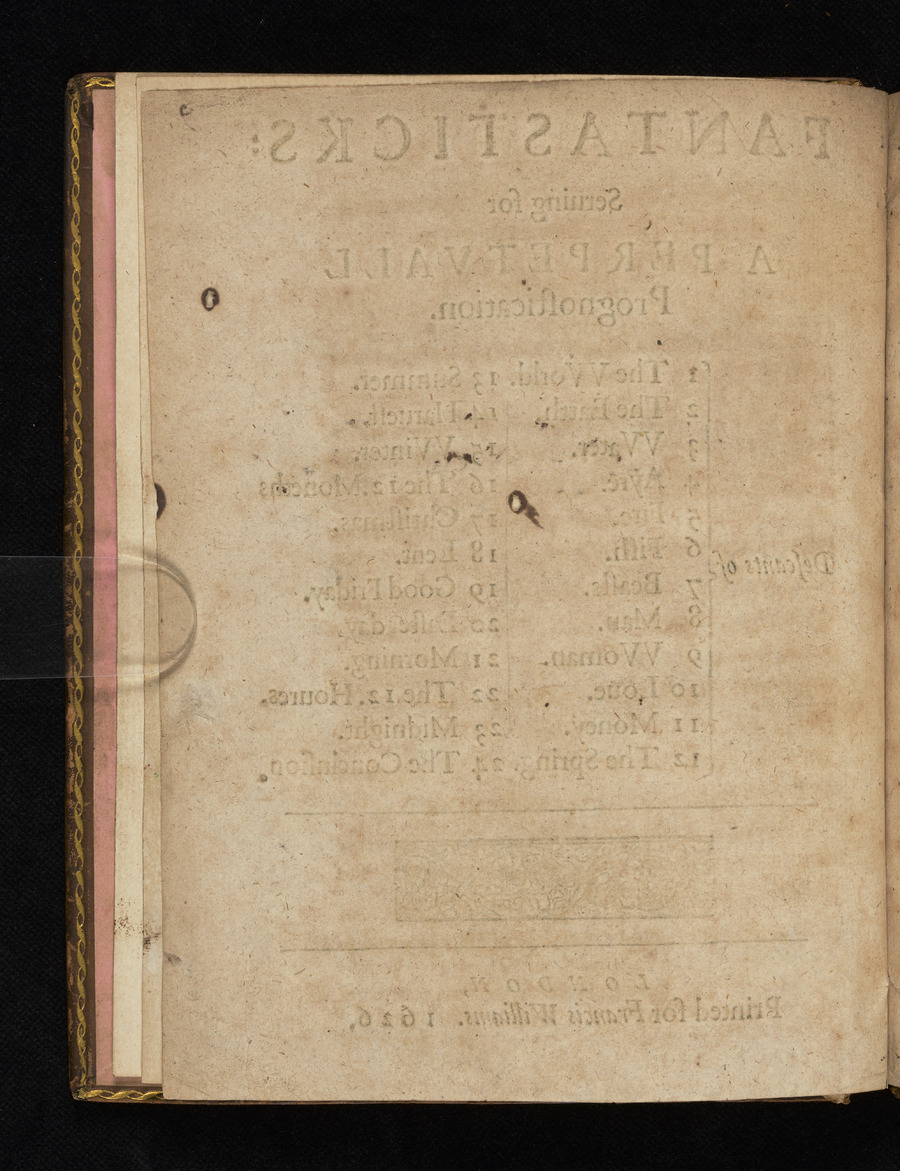 FANTASTICKS:
Seruing for
A PERPETVALL
Prognoſtication.
1 The VVorld. 13 Summer.
2 The Earth. 14 Harueſt.
3 VVater. 15 VVinter.
4 Ayre. 16 The 12 Moneths
5 Fire. 17 Chriſtmas.
6 Fiſh. 18 Lent.
Deſcants of
7 Beaſts. 19 Good Friday.
8 Man. 20 Eaſter day.
9 VVoman. 21 Morning.
10 Loue. 22 The. 12. Houres.
11 Money. 23 Midnight.
12 The Spring. 24 The Concluſion
LONDON,
Printed for Francis Williams. 1626,